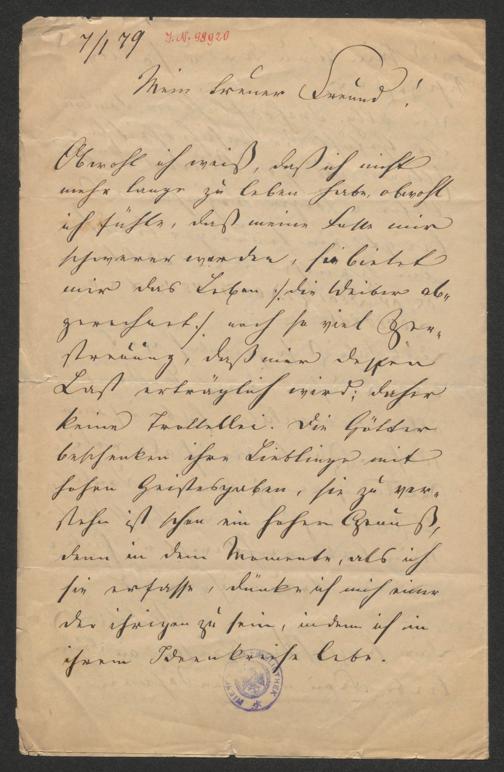 7/1 79
J.N. 99920
Mein treuer Freund!
Obwohl ich weiß, daß ich nicht
mehr lange zu leben habe, obwohl
ich fühle, daß meine mir
schwerer werden, so bietet
mir das Leben /: die Weiber ab-
gerechnet :/ noch so viel Zer-
streuung, daß mir dessen
Last erträglich wird; daher
keine Trottellei. Die Götter
beschenken ihre Lieblinge mit
hohen Geistesgaben, sie zu ver-
stehn ist schon ein hoher Genuß,
denn in dem Momente, als ich
sie erfasse, dünke ich mich einer
der ihrigen zu sein, indem ich in
ihrem Ideenkreise lebe.